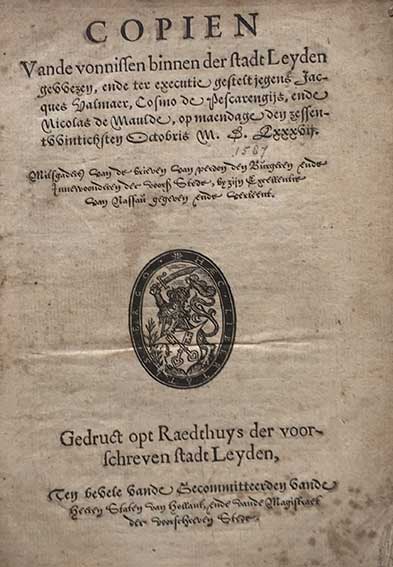 COPIEN
Vande vonnissen binnen der stadt Leyden
gewezen, ende ter executie gestelt jegens Jac-
ques Valmaer, Cosmo de Pescarengijs, ende
Nicolas de Maulde, op maendage den zessen-
twintichsten Octobris M. D. LXXXVIJ.
1587
Mitsgaders van de brieven van perdon den Burgeren ende
Innewoonderen der voorsz Stede, by zijn Excellentie
van Nassau gegeven ende verleent.
HÆC LIBERTATIS ERGO
Gedruct opt Raedthuys der voor-
schreven stadt Leyden,
Ten bevele vande Gecommitteerden vande
Heeren Staten van Hollant, ende vande Magistraet
der voorschreven Stede.